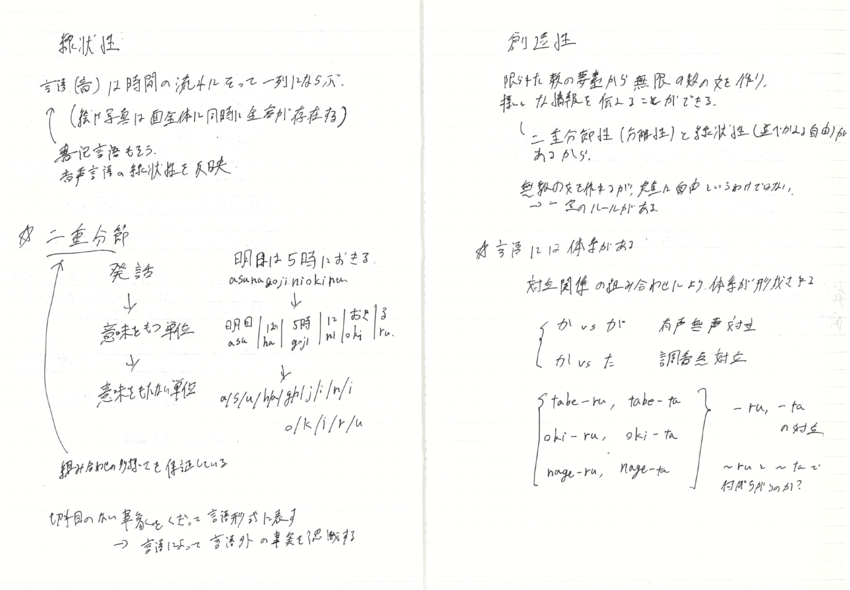 線状性
言語(音)は時間の流れにそって一列にならぶ.
(絵や写真は面全体に同時に全容が存在する)
書記言語もそう.
音声言語の線状性を反映
☆ 二重分節
発話
明日は5時におきる.
asuhagojiniokiru.
↓ ↓
意味をもつ単位
明日|は|5時|に|おき|る
asu|ha|goji|ni|oki|ru.
↓ ↓
意味をもたない単位
a/s/u/h/a/g/o/j/i/n/i
o/k/i/r/u
組み合わせの多様性を保証している
切れ目のない事象をくぎって言語形式に表す
→ 言語によって言語外の事実を認識する
創造性
限られた数の要素から無限の数の文を作り.
様々な情報を伝えることができる.
二重分節性(分解性)と線状性(並べかえる自由)が
あるから.
無数の文を作れるが、完全に自由というわけではない.
→ 一定のルールがある
☆言語には体系がある
対立関係の組み合わせにより.体系が形成される
か vs が 有声無声対立
か vs た 調音点対立
tabe-ru, tabe-ta
oki-ru, oki-ta
nage-ru, nage-ta
-ru, -ta
の対立
〜ruと〜taで
何がちがうのか?